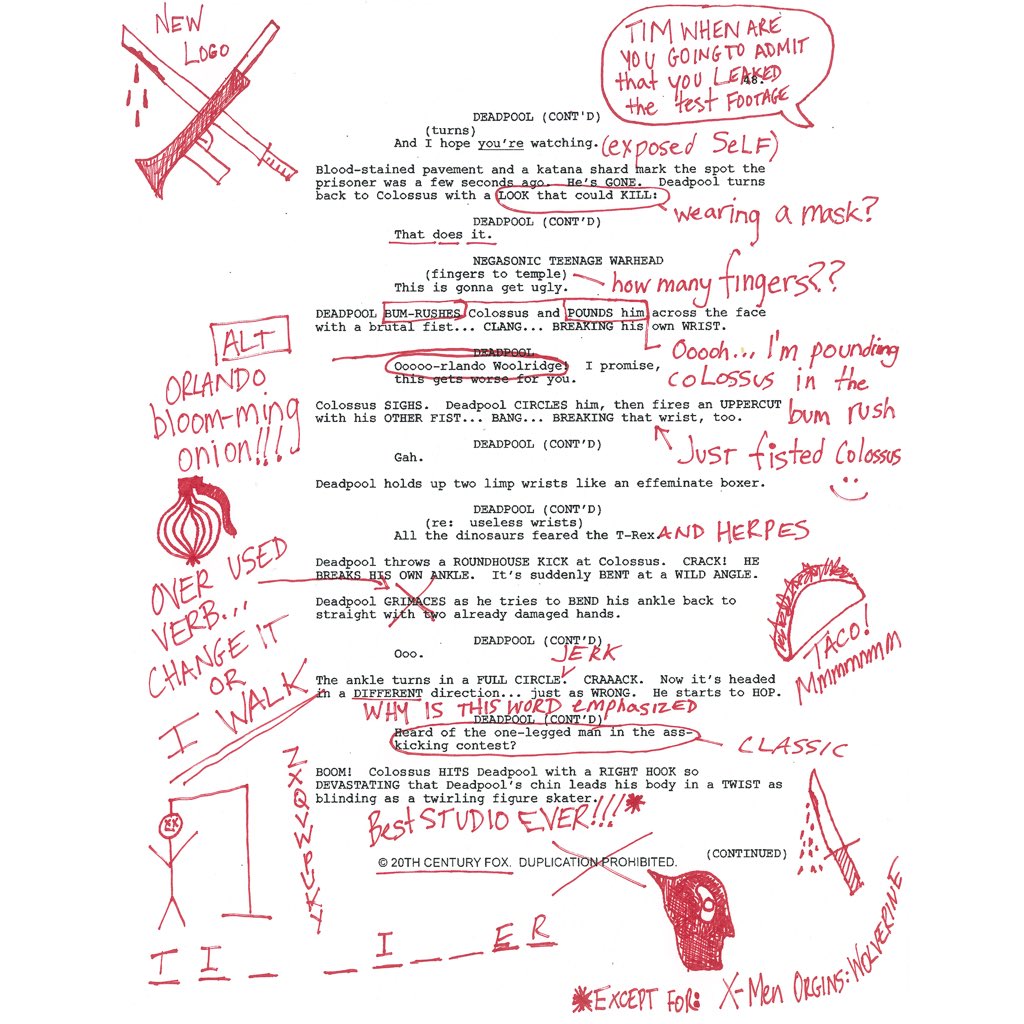 NEW
LOGO
TIM WHEN ARE
YOU GOING TO ADMIT
that you LEAKED
the test FOOTAGE
48.
DEADPOOL (CONT'D)
(turns)
And I hope you're watching.
(exposed SELF)
Blood-stained pavement and a katana shard mark the spot the
prisoner was a few seconds ago. He's GONE. Deadpool turns
back to Colossus with a LOOK that could KILL:
wearing a mask?
DEADPOOL (CONT'D)
That does it.
NEGASONIC TEENAGE WARHEAD
(fingers to temple)
how many fingers??
This is gonna get ugly.
DEADPOOL BUM-RUSHES Colossus and POUNDS him across the face
with a brutal fist... CLANG... BREAKING his own WRIST.
ALT
ORLANDO
bloom-ming
onion!!!
DEADPOOL
Ooooo-rlando Woolridge! I promise,
this gets worse for you.
Ooooh... I'm pounding
COLOSSUS in the
bum rush
Colossus SIGHS. Deadpool CIRCLES him, then fires an UPPERCUT
with his OTHER FIST... BANG... BREAKING that wrist, too.
Just fisted Colossus
DEADPOOL (CONT'D)
Gah.
Deadpool holds up two limp wrists like an effeminate boxer.
DEADPOOL (CONT'D)
(re: useless wrists)
All the dinosaurs feared the T-Rex.
AND HERPES
Deadpool throws a ROUNDHOUSE KICK at Colossus. CRACK! HE
BREAKS HIS OWN ANKLE. It's suddenly BENT at a WILD ANGLE.
OVER USED
VERB...
CHANGE IT
OR
I WALK
Deadpool GRIMACES as he tries to BEND his ankle back to
straight with two already damaged hands.
TACO!
Mmmmmmm
DEADPOOL (CONT'D)
Ooo.
JERK
The ankle turns in a FULL CIRCLE. CRAAACK. Now it's headed
in a DIFFERENT direction... just as WRONG. He starts to HOP.
WHY IS THIS WORD emphasized
DEADPOOL (CONT'D)
Heard of the one-legged man in the ass-
kicking contest?
CLASSIC
BOOM! Colossus HITS Deadpool with a RIGHT HOOK so
DEVASTATING that Deadpool's chin leads his body in a TWIST as
blinding as a twirling figure skater.
Best STUDIO EVER!!!*
(CONTINUED)
© 20TH CENTURY FOX. DUPLICATION PROHIBITED.
ZXQVWPUKY
T I _ _ I _ _ E R
*EXCEPT FOR: X-Men ORGINS: WOLVERINE